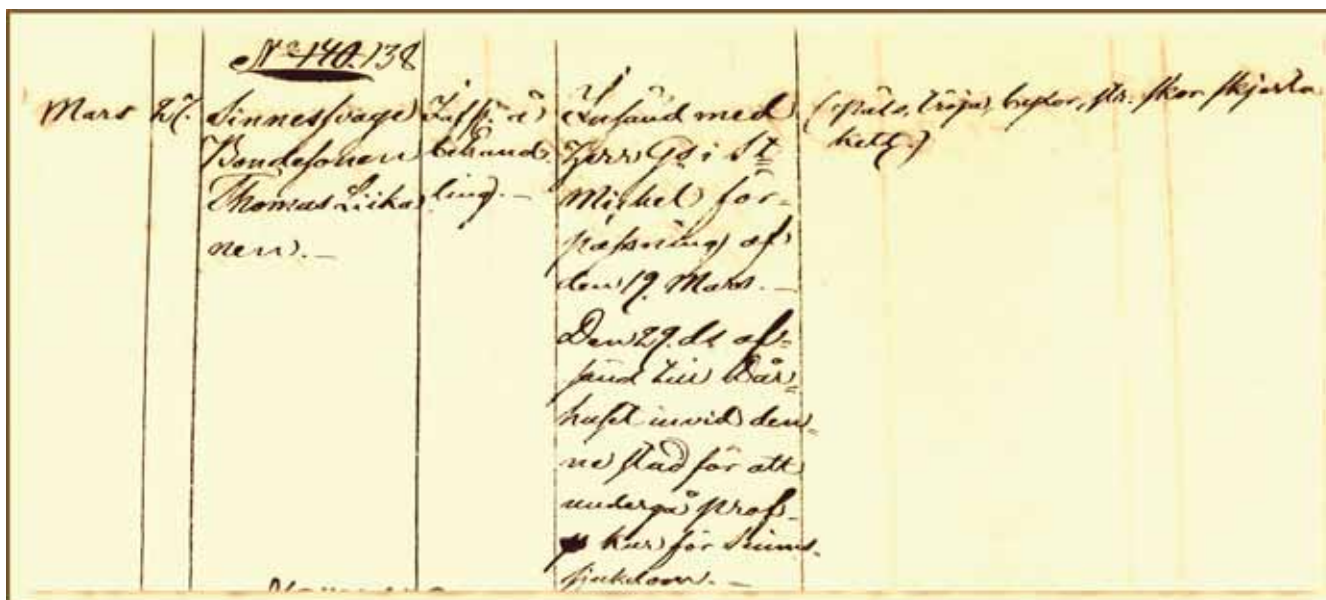 No 140. 138
Mars 27.
Sinnessvage
Bondesonen
Thomas Liika
nen. —
behand
ling. —
Insänd med
Herr G. i St
Michel för-
passning af
den 19. Mars. —
Den 29. ds af-
sänd till Dår-
huset invid den-
ne stad för att
undergå prof-
kur för Sinnes-
sjukdom. —
(Päls, tröja, byxor, str. skor skjorta